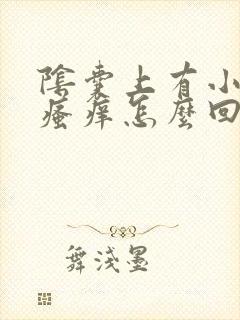 陰囊上有小
瘙痒怎麼回
舞淺墨